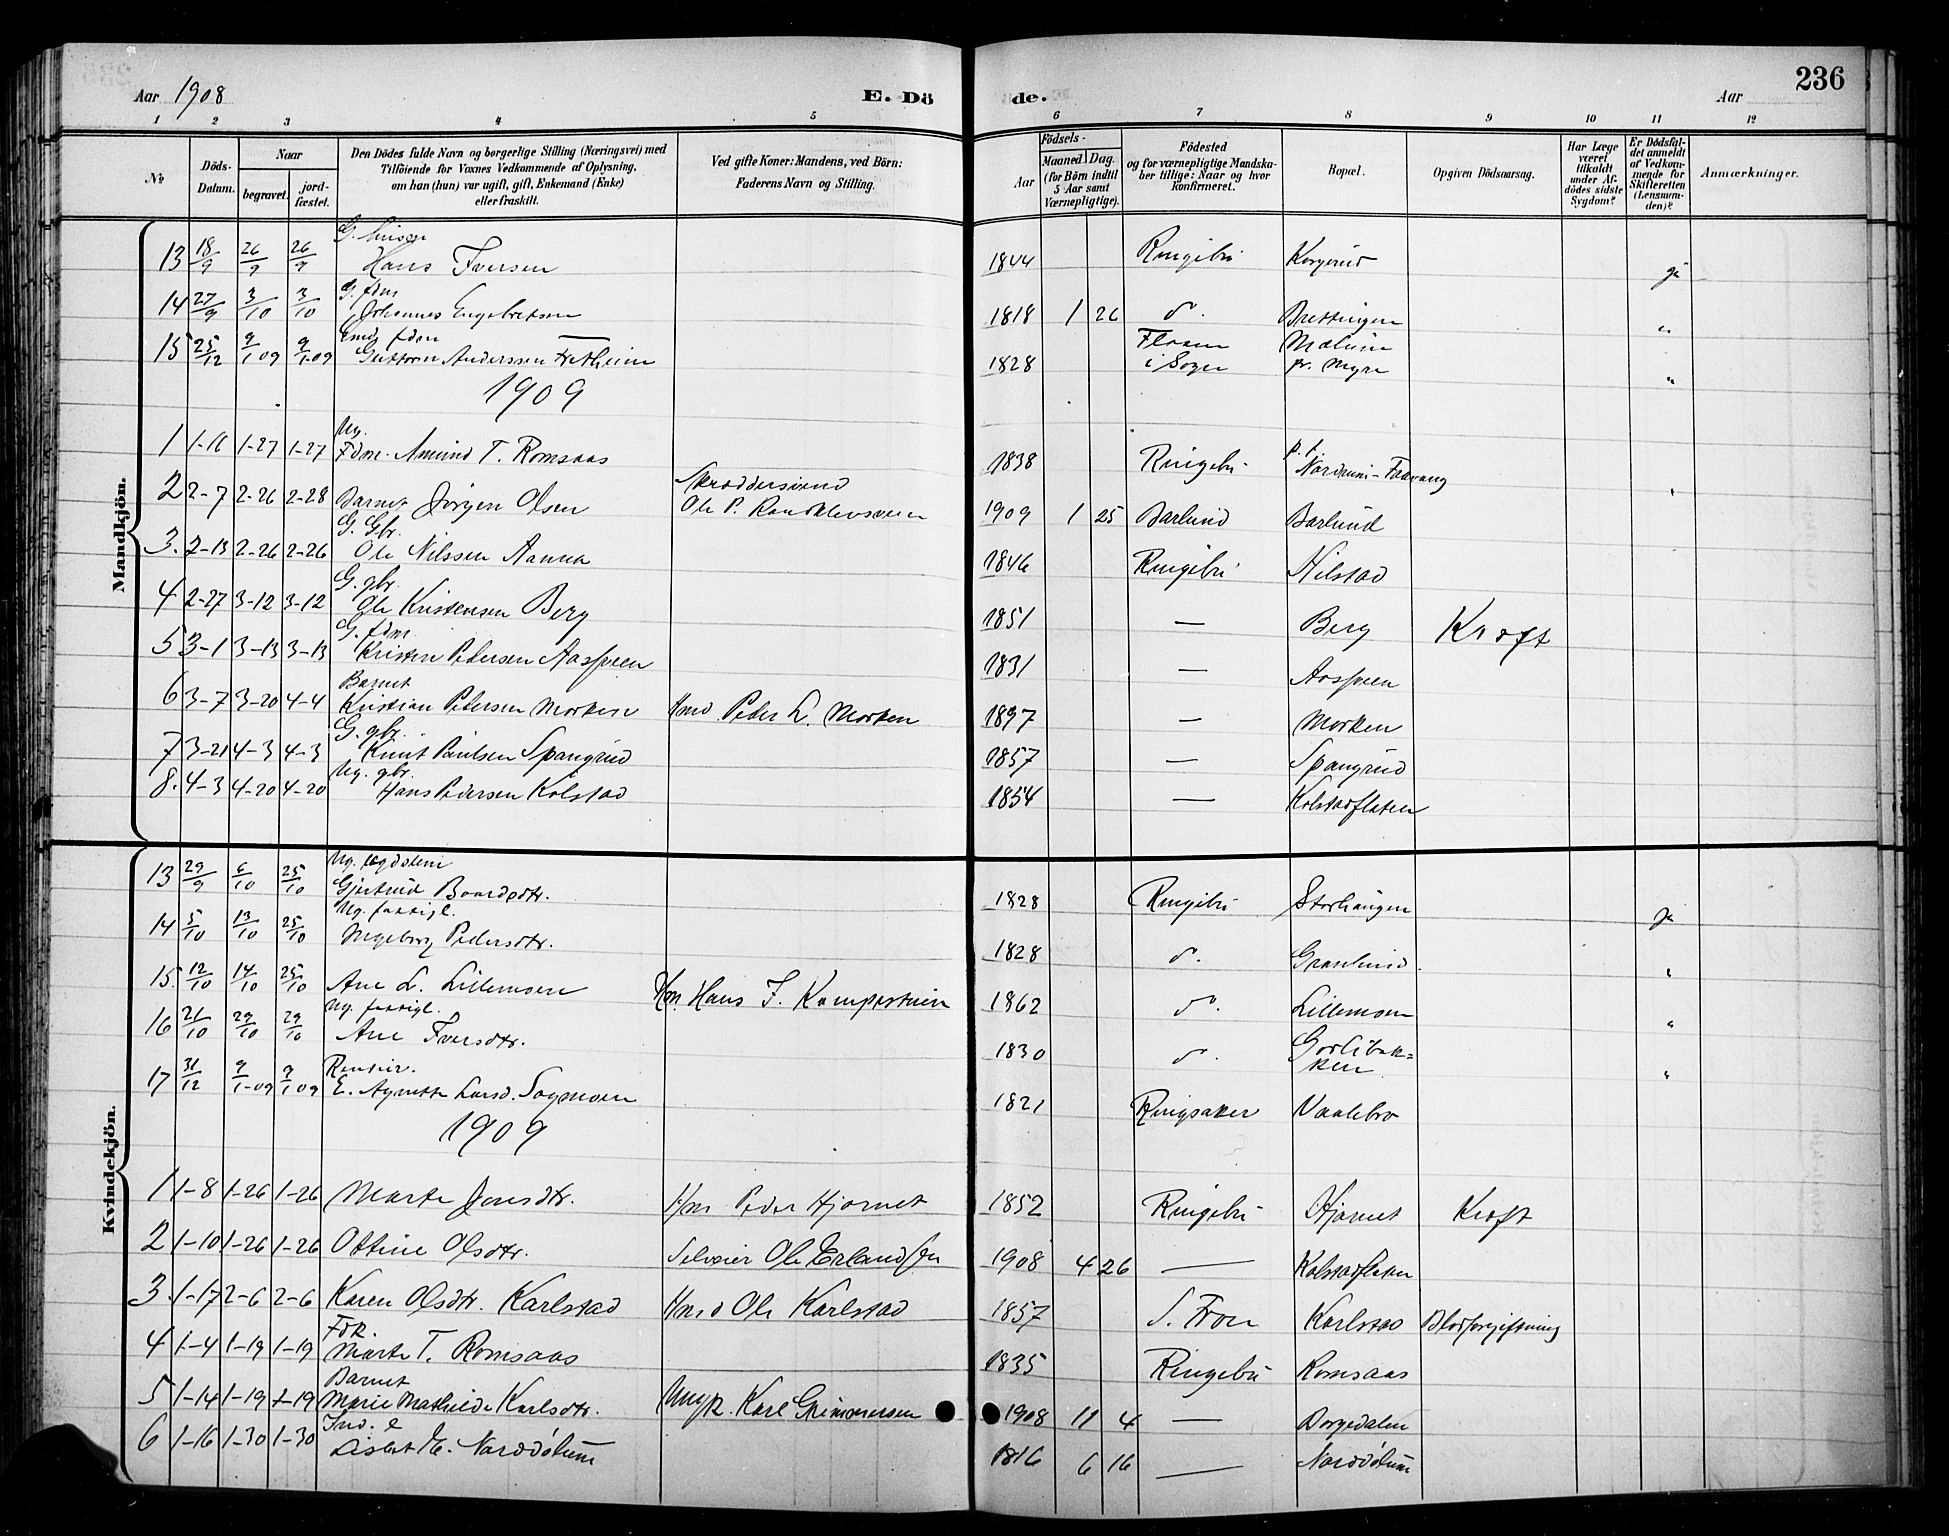 Aar 1908
E. Dö
de.
Aar
236
1 2 3 4 5 6 7 8 9 10 11 12
No
Döds-Datum.
Naar
begravet.
jord-fæstet.
Den Dödes fulde Navn og borgerlige Stilling (Næringsvei) med
Tilföiende for Voxnes Vedkommende af Oplysning,
om han (hun) var ugift, gift, Enkemand (Enke)
eller fraskilt.
Ved gifte Koner: Mandens, ved Börn:
Faderens Navn og Stilling.
Födsels-
Aar
Maaned Dag.
(for Börn indtil
5 Aar samt
Værnepligtige).
Födested
og for værnepligtige Mandska-
ber tillige: Naar og hvor
konfirmeret.
Bopæl.
Opgiven Dödsaarsag.
Har Læge
været
tilkaldt
under Af-
dödes sidste
Sygdom?
Er Dödsfal-
det anmeldt
af Vedkom-
mende for
Skifteretten
(Lensman-
den)?
Anmærkninger.
Mandkjön.
13 18/9 26/9 26/9 Hans Iversen 1844 Ringebu ja
14 27/9 3/10 3/10 G. fdm Johannes Engebretsen 1818 1 26 d. Brettingen "
15 25/12 9/1 09 9/1 09 Guttorm Anderssen Fretheim 1828 Flaam i Sogn pr. Myre "
1909
1 1-16 1-27 1-27 Ug. Fdm. Amund T. Romsaas 1838 Ringebu p.t. Nordrum-Faavang "
2 2-7 2-26 2-28 Barnet Jörgen Olsen Skræddersvend Ole P. 1909 1 25 Barlund Barlund
3. 2-13 2-26 2-26 G. Gbr. Ole Nilssen 1846 Ringebu Hilstad
4 2-27 3-12 3-12 G. gbr. Ole Kristensen Berg 1851 — Berg Kræft
5 3-1 3-13 3-13 G. fdm Kristen Pedersen Aaspreen 1831 — Aaspreen
6 3-7 3-20 4-4 Barnet Kristian Petersen Morken Hmd Peder L. Morken 1897 — Morken
7 3-21 4-3 4-3 G. gbr. Knut Paulsen Spangrud 1857 — Spangrud
8. 4-3 4-20 4-20 Ug. gbr. Hans Pedersen Kolstad 1854 — Kolstadflaten
Kvindekjön.
13 29/9 6/10 25/10 Ug. Gjertrud Baardsdtr. 1828 Ringebu Storhaugen ja
14 5/10 13/10 25/10 Ug. fattigl. Ingeborg Pedersdtr. 1828 d. "
15. 12/10 14/10 25/10 Ane L. Lillemoen Hm. Hans J. Kampesteen 1862 do. Lillemoen "
16 21/10 29/10 29/10 Ug. fattigl. Ane Iversdtr. 1830 d. Gorlibak-ken "
17 31/12 9/1-09 9/1 09 E. Agnethe Larsd. Sogmoen 1821 Ringsaker Vaalebro
1909
1 1-8 1-26 1-26 Marte Jonsdtr. Hm Peder Hjornet 1852 Ringebu Hjornet Kræft
2 1-10 1-26 1-26 Ottine Olsdtr. Selveier Ole Erlandsen 1908 4 26 — Kolstadflaten
3. 1-17 2-6 2-6 Karen Olsdtr. Karlstad Hmd Ole Karlstad 1857 S. Fron Karlstad Blodforgiftning
4 1-4 1-19 1-19 Fdk. Marte T. Romsaas 1835 Ringebu Romsaas
5 1-14 1-19 1-19 Barnet Marie Mathilde Karlsdtr. Karl Grimmersen 1908 11 4 — Borgedalen
6 1-16 1-30 1-30 Ind. e Lisbet E. Norddölum 1816 6 16 — Norddölum